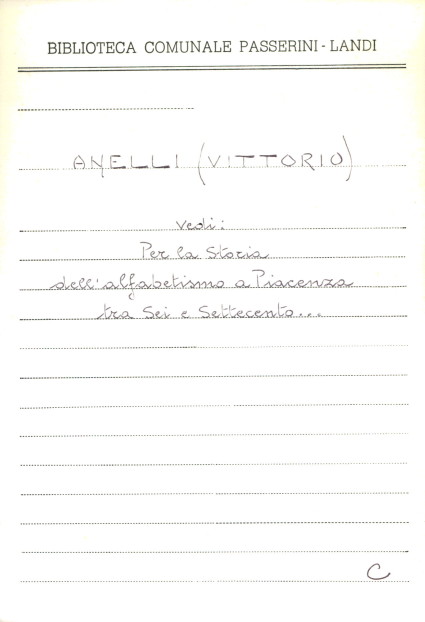 BIBLIOTECA COMUNALE PASSERINI - LANDI
ANELLI (VITTORIO)
Vedi:
Per la Storia
dell'alfabetismo a Piacenza
tra Sei e Settecento...
C